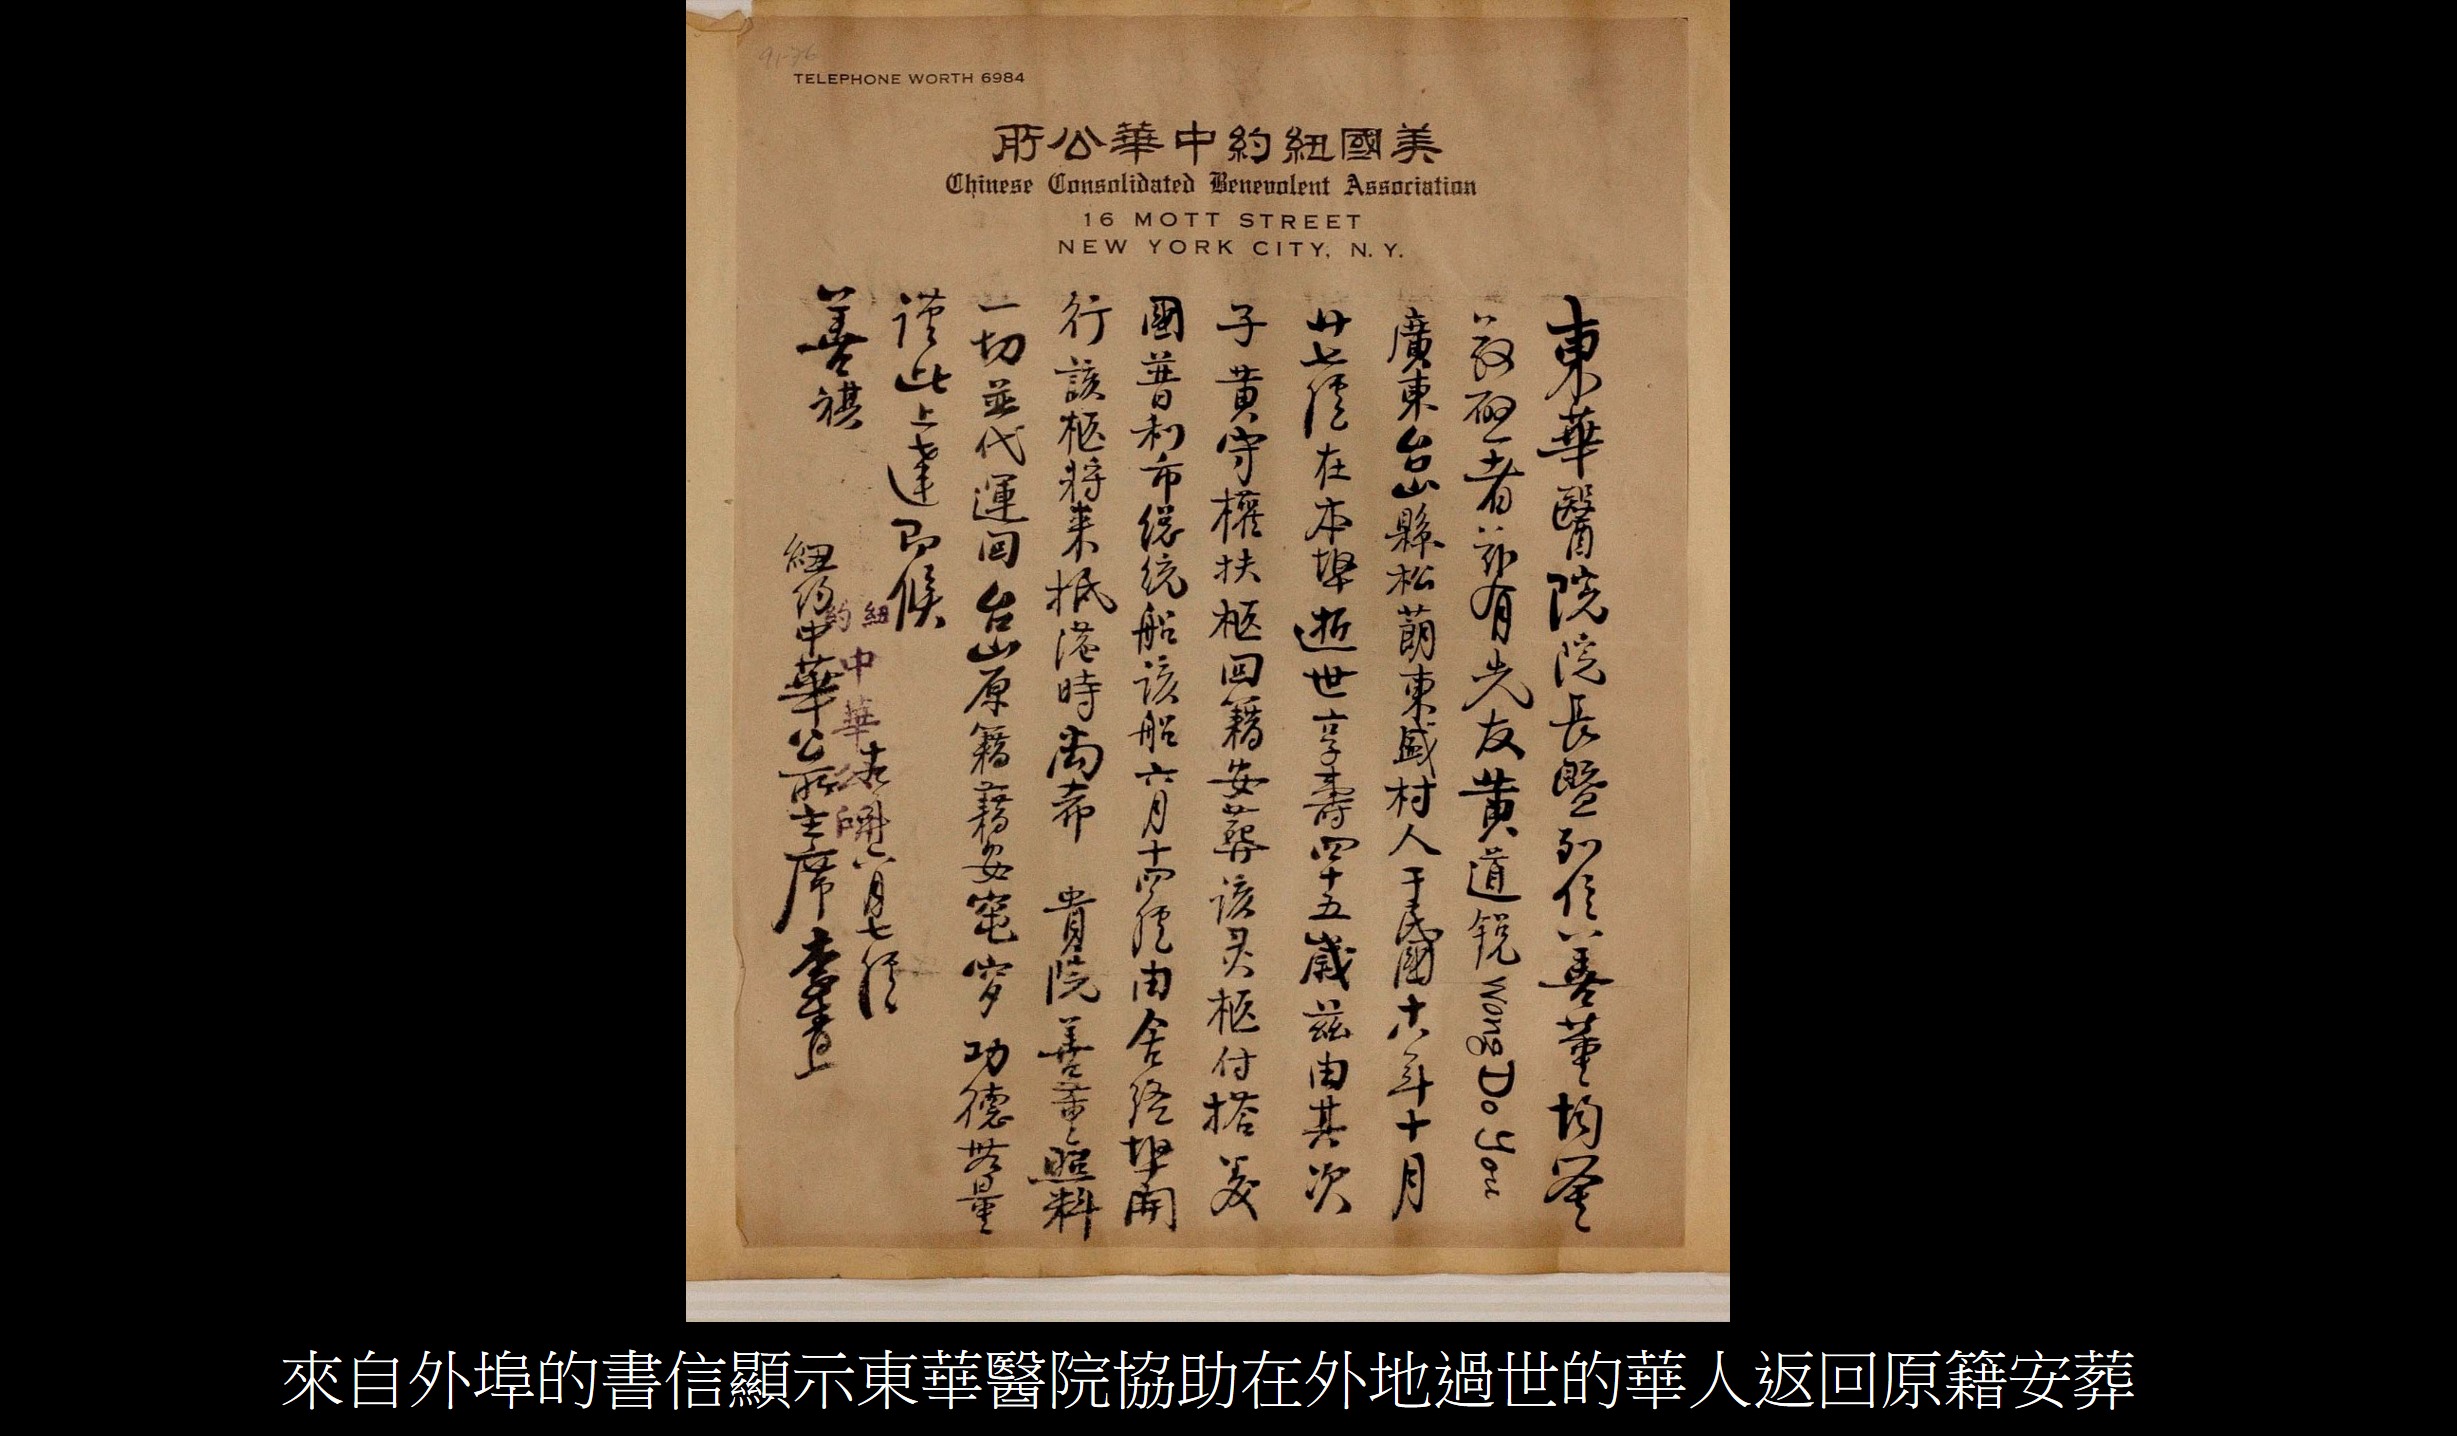 91-76
TELEPHONE WORTH 6984
美國紐約中華公所
Chinese Consolidated Benevolent Association
16 MOTT STREET
NEW YORK CITY, N. Y.
東華醫院院長暨列位善董均鑒
敬啟者茲有先友黃道銳Wong Do You
廣東台山縣松蓢東盛村人于民國十六年十月
廿七號在本埠逝世享壽四十五歲茲由其次
子黃守權扶柩回籍安葬該灵柩付搭美
國普利市總統船該船六月十四號由舍路埠開
行該柩將來抵港時尚希 貴院善董照料
一切並代運回台山原籍藉安窀穸功德無量
謹此上達即候
善祺
紐約中華公所
六月七號
紐約中華公所主席李 上
來自外埠的書信顯示東華醫院協助在外地過世的華人返回原籍安葬